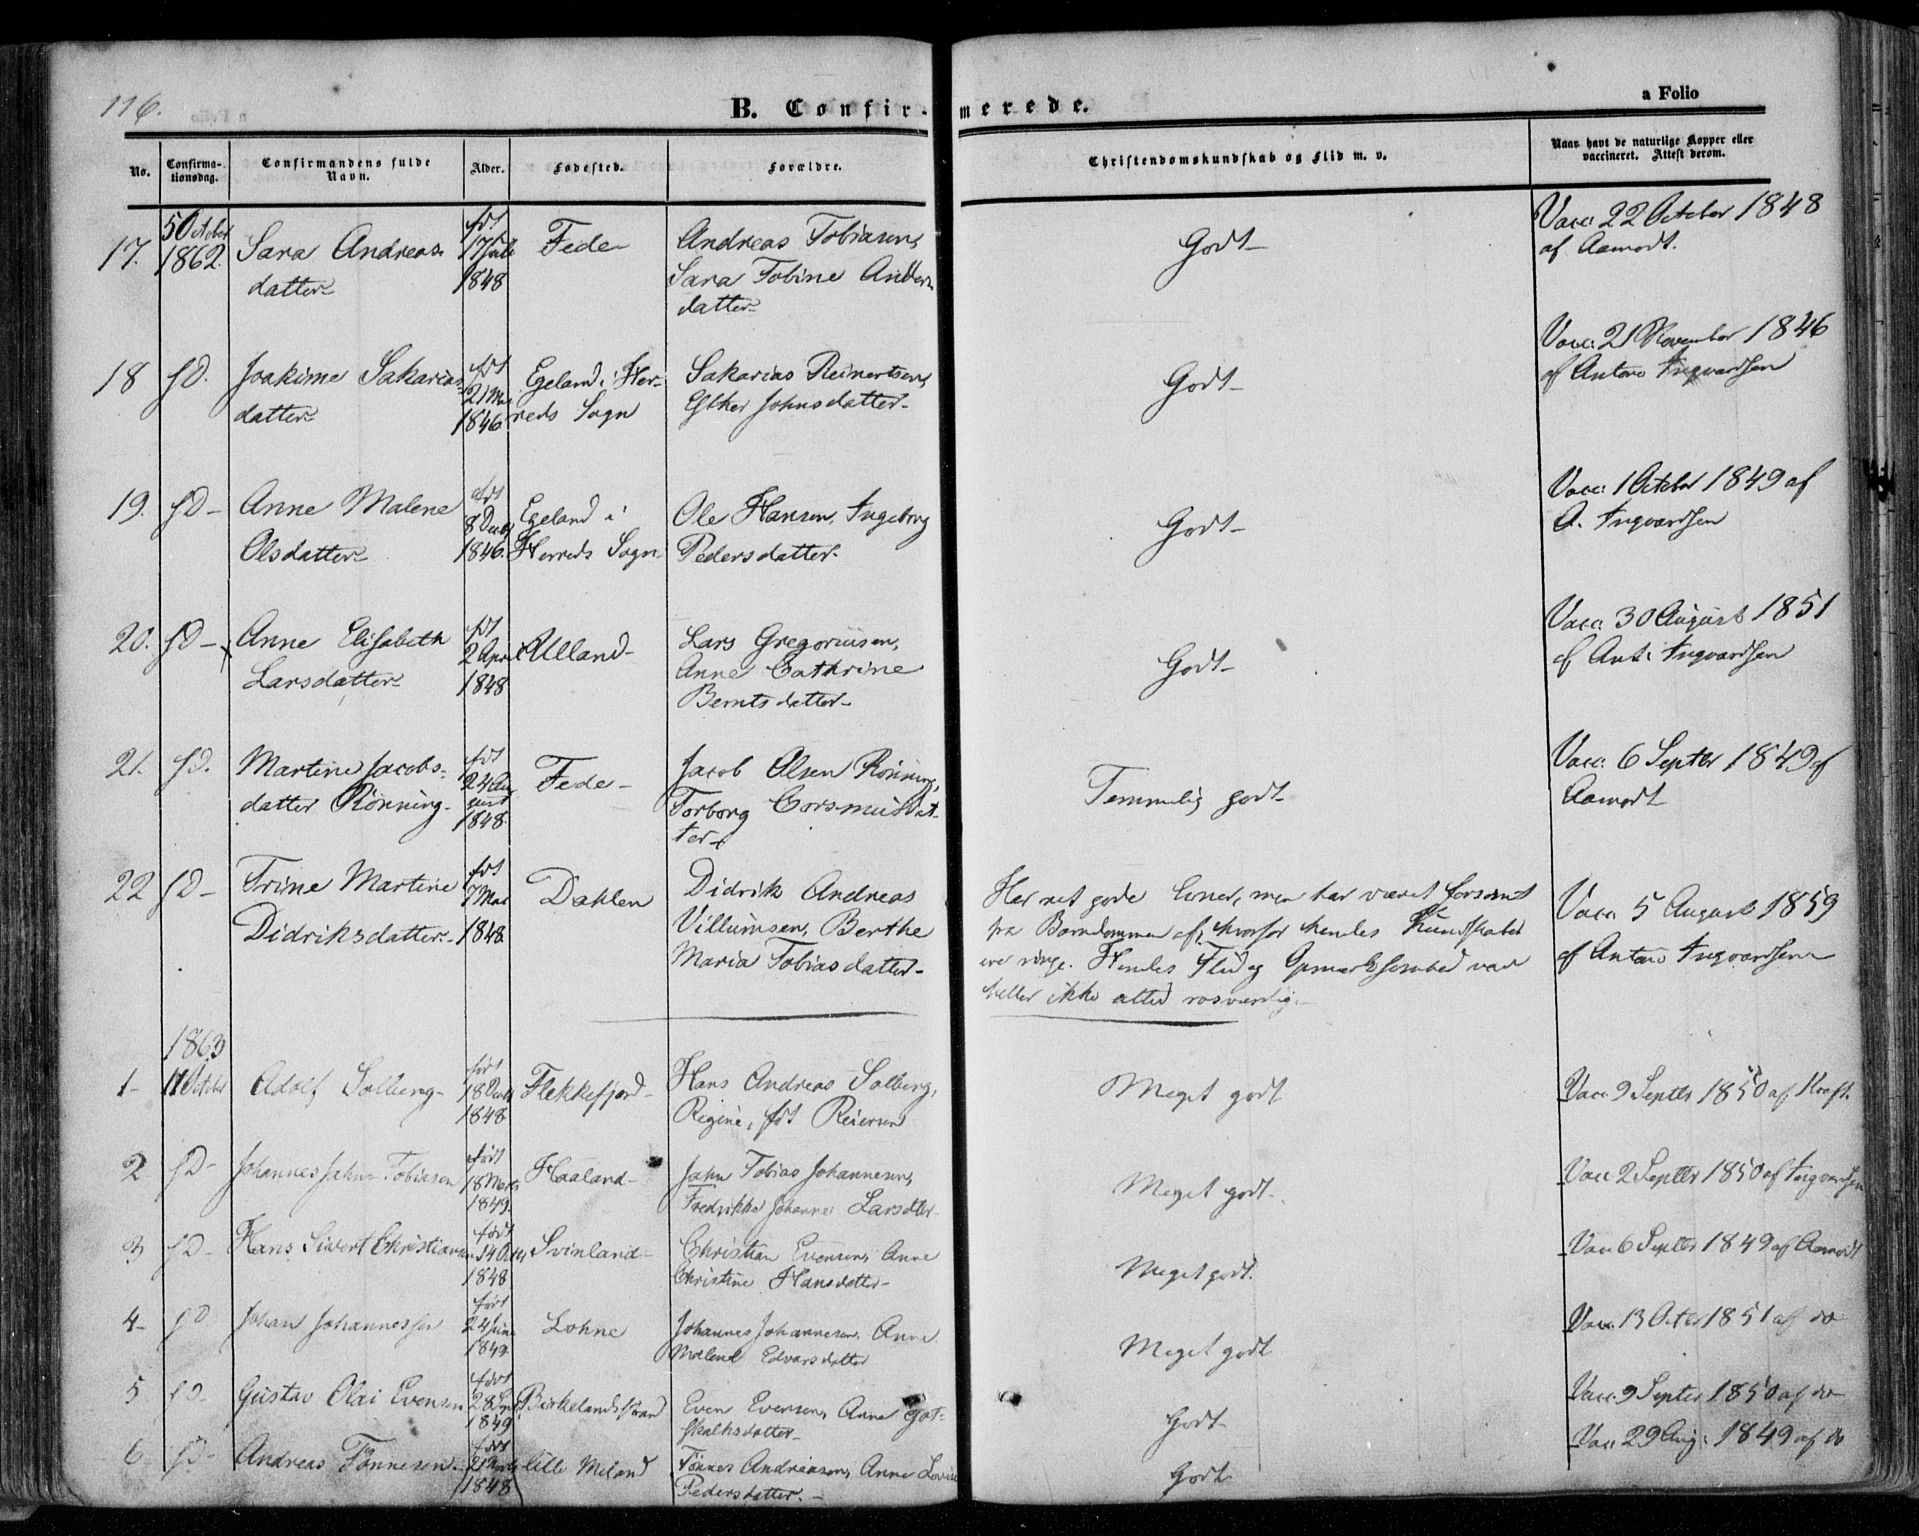 116.
B. Confir-
merede.
a Folio
No.
Confirma-
tionsdag.
Confirmandens fulde
Navn.
Alder.
Fødested.
Forældre.
Christendomskundskab og Flid m. v.
Naar havt de naturlige Kopper eller
vaccineret. Attest derom.
17.
5 October
1862.
Sara Andreas-
datter
født
17 Juli
1848
Fede
Andreas Tobiasen,
Sara Tobine Anders
datter
Godt
Vacc. 22 October 1848
af Aamodt.
18
sD.
Joakime Sakarias
datter
født
21 Mai
1846
Egeland i Her-
reds Sogn
Sakarias Reinertsen,
Esther Johnsdatter
Godt
Vacc. 21 November 1846
af Antono Ingvardsen
19.
sD
Anne Malene
Olsdatter
født
8 Decb
1846
Egeland i
Herreds Sogn
Ole Hansen, Ingeborg
Pedersdatter
Godt
Vacc. 1 October 1849 af
A. Ingvardsen
20.
sD
Anne Elisabeth
Larsdatter
født
2 April
1848
Ulland
Lars Gregoriusen,
Anne Cathrine
Berntsdatter
Godt
Vacc. 30 August 1851
af Ant. Ingvardsen
21.
sD.
Martine Jacobs-
datter Rønning
født
24 Au
gust
1848.
Fede
Jacob Olsen Rønning,
Torborg Corsmusdat-
ter
Temmelig godt
Vacc. 6 Septbr 1849 af
Aamodt
22
sD
Trine Martine
Didriksdatter
født
7 Mai
1848
Dahlen
Didrik Andreas
Villumsen, Berthe
Maria Tobiasdatter
Har ret gode Evner, men har været forsømt
fra Barndommen af, hvorfor hendes Kundskaber
ere ringe. Hendes Flid og Opmærksomhed var
heller ikke altid rosværdig.
Vacc. 5 August 1859
af Antono Ingvardsen
1863
1
11 October
Adolf Solberg
født
18 Decb
1848
Flekkefjord
Hans Andreas Solberg,
Regine, født Reiersen
Meget godt
Vacc. 9 Septbr 1850 af Kraft.
2
sD
Johannes Jahn Tobiasen
født
18 Marts
1849
Haaland
Jahn Tobias Johannesen,
Fredrikke Johanne Larsdtter
Meget godt.
Vacc 2 Septbr 1850 af Ingvardsen
3
sD
Hans Sivert Christiansen
født
14 Octb
1848
Svinland
Christian Evensen, Anne
Christine Hansdatter
Meget godt.
Vacc 6 Septbr 1849 af Aamodt
4
sD
Johan Johannessen
født
24 Juni
1849
Lohne
Johannes Johannesen, Anne
Malene Edvarsdatter
Meget godt
Vacc. 13 Octbr 1851 af do
5
sD
Gustav Olai Evensen
født
28
1849
Birkelandstrand
Even Evensen, Anne Got-
skalksdatter
Godt
Vacc. 9 Septbr 1850 af do
6
sD
Andreas Tønnesen
født
21
1848
lille Meland
Tønnes Andreasen, Anne Lovise
Pedersdatter.
Godt
Vacc 29 Aug. 1849 af do